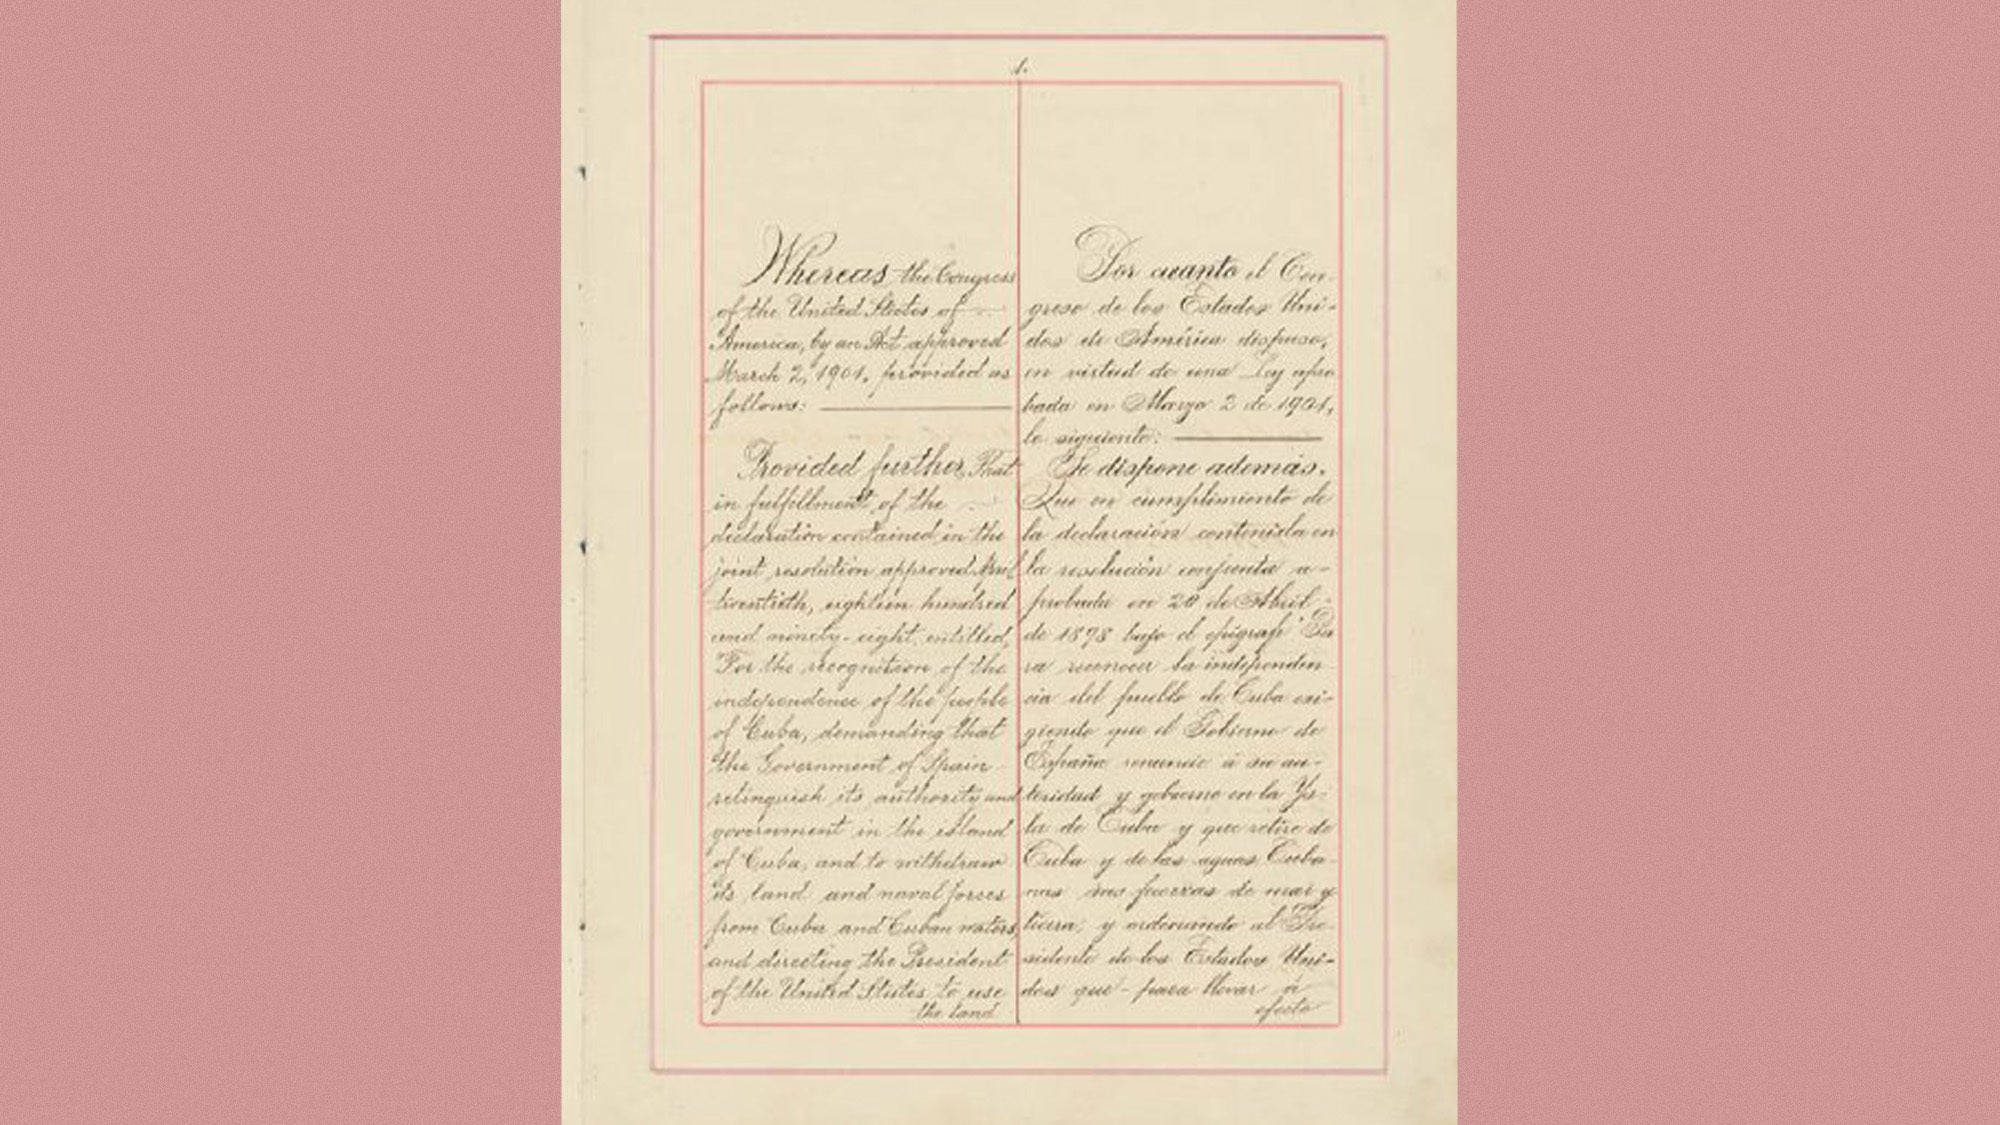 1.
Whereas the Congress
of the United States of
America, by an Act approved
March 2, 1901, provided as
follows:
Provided further, That
in fulfillment of the
declaration contained in the
joint resolution approved April
twentieth, eighteen hundred
and ninety-eight, entitled,
"For the recognition of the
independence of the people
of Cuba, demanding that
the Government of Spain
relinquish its authority and
government in the island
of Cuba, and to withdraw
its land and naval forces
from Cuba and Cuban waters,
and directing the President
of the United States to use
the land
Por cuanto el Con-
greso de los Estados Uni-
dos de América dispuso,
en virtud de una Ley apro
bada en Marzo 2 de 1901,
lo siguiente:
Se dispone además,
Que en cumplimiento de
la declaración contenida en
la resolución conjunta a-
probada en 20 de Abril
de 1898 bajo el epígrafe "Pa
ra reconocer la independen-
cia del pueblo de Cuba exi-
giendo que el Gobierno de
España renuncie á su au-
toridad y gobierno en la Ys-
la de Cuba y que retire de
Cuba y de las aguas Cuba-
nas sus fuerzas de mar y
tierra; y ordenando al Pre-
sidente de los Estados Uni-
dos que - para llevar á
efecto